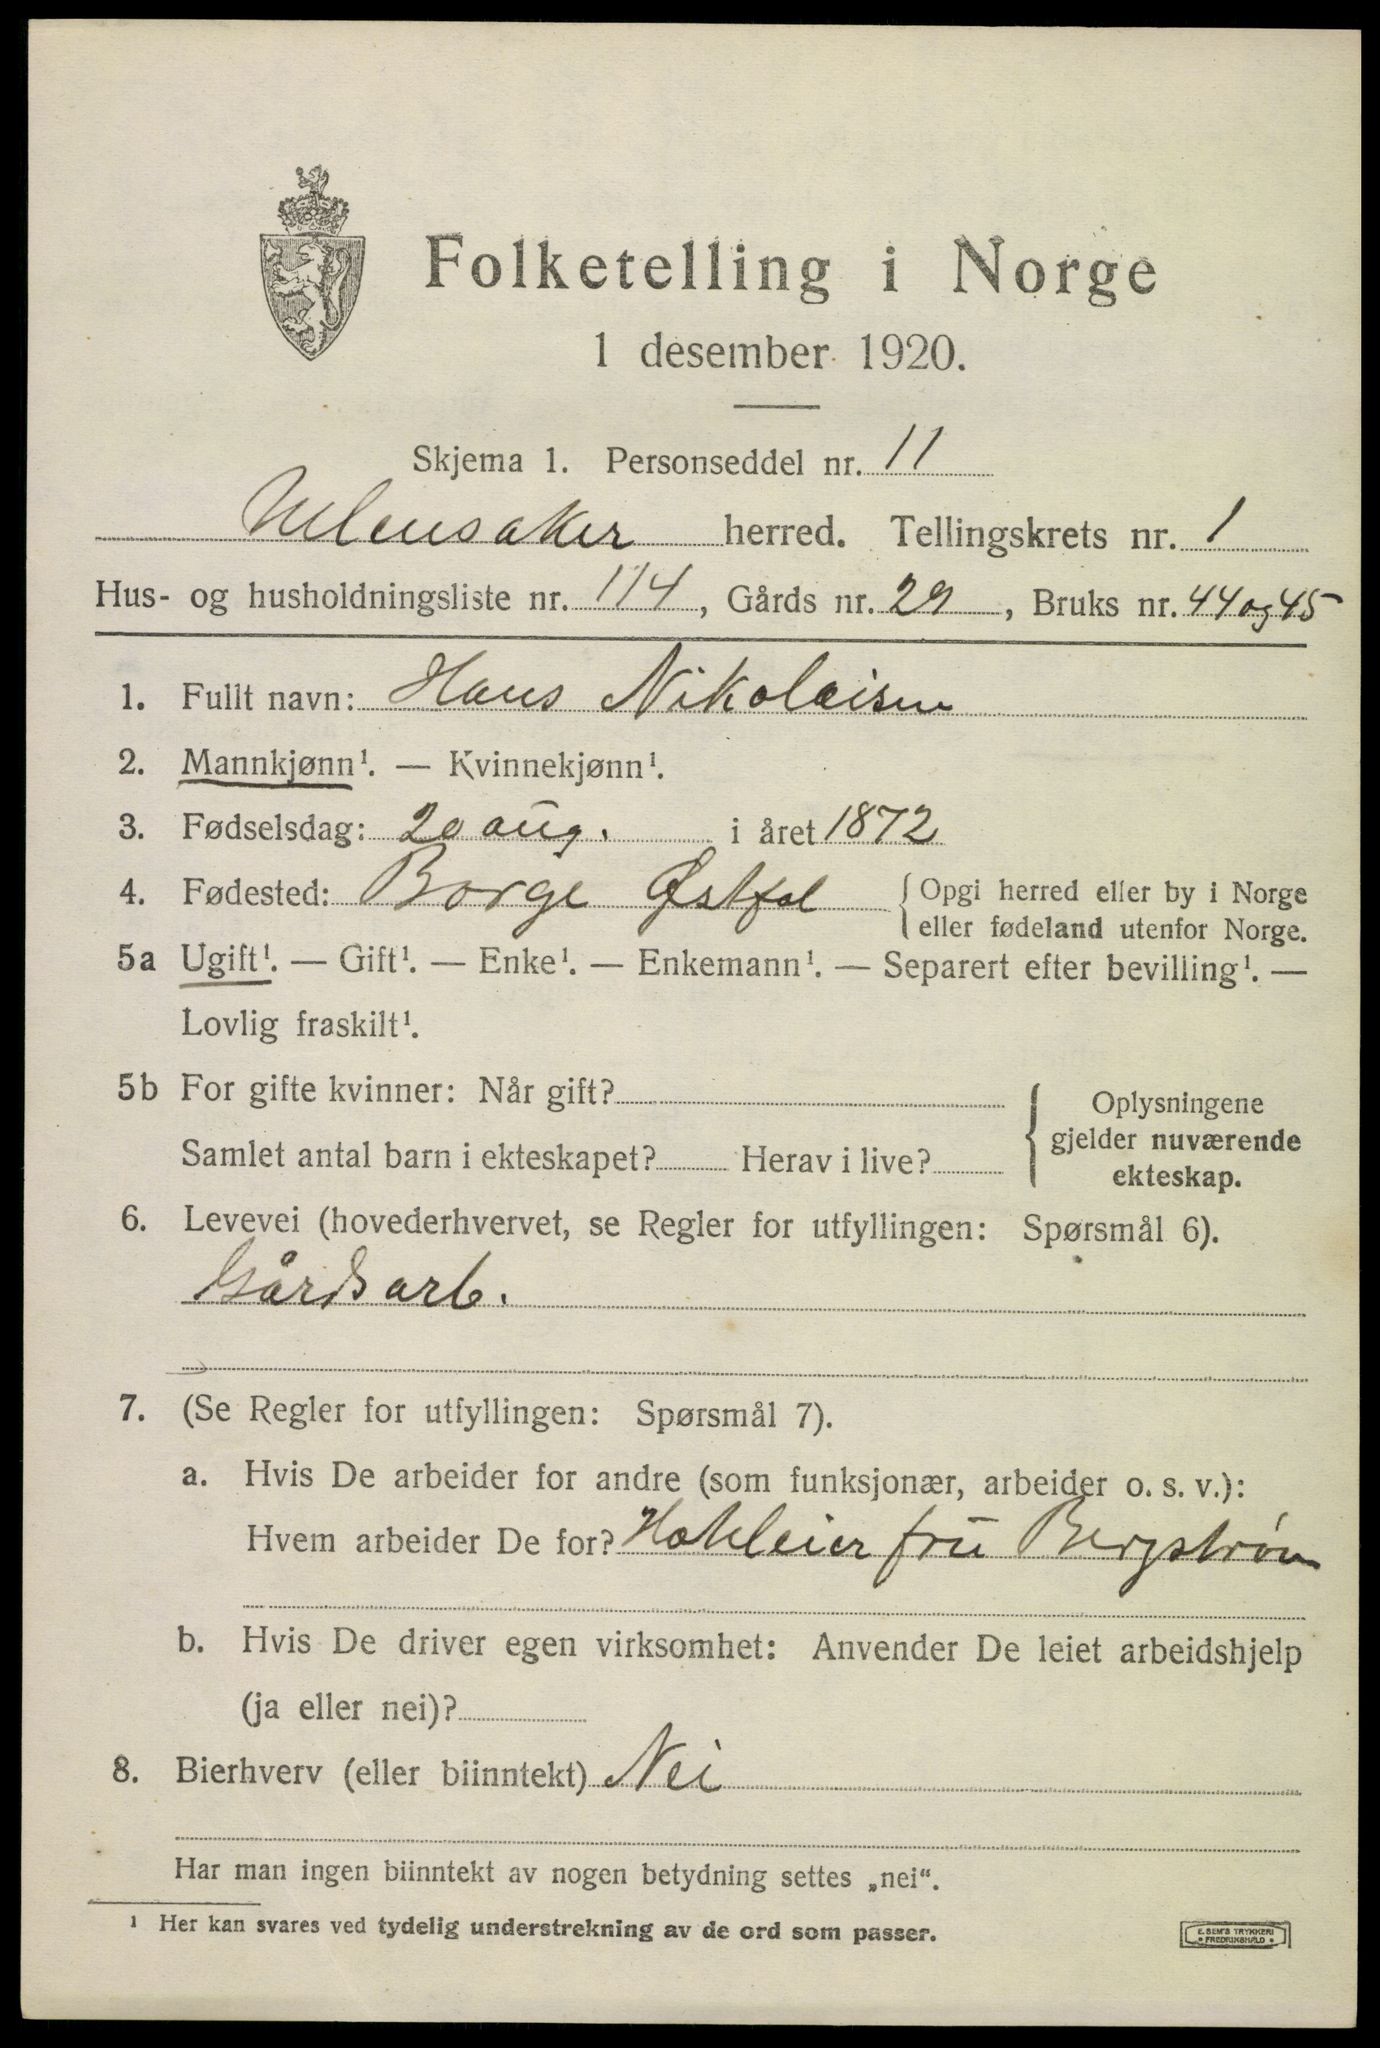 Folketelling i Norge
1 desember 1920.
Skjema 1. Personseddel nr. 11
Ullensaker herred. Tellingskrets nr. 1
Hus- og husholdningsliste nr. 114, Gårds nr. 29, Bruks nr. 44 og 45
1. Fullt navn: Hans Nikolaisen
2. Mannkjønn¹. — Kvinnekjønn¹.
3. Fødselsdag: 20 aug. i året 1872
4. Fødested: Borge Østfol { Opgi herred eller by i Norge
eller fødeland utenfor Norge.
5a Ugift¹. — Gift¹. — Enke¹. — Enkemann¹. — Separert efter bevilling¹. —
Lovlig fraskilt¹.
5b For gifte kvinner: Når gift?
Samlet antal barn i ekteskapet? Herav i live?
{ Oplysningene
gjelder nuværende
ekteskap.
6. Levevei (hovederhvervet, se Regler for utfyllingen: Spørsmål 6).
Gårdsarb.
7. (Se Regler for utfyllingen: Spørsmål 7).
a. Hvis De arbeider for andre (som funksjonær, arbeider o. s. v.):
Hvem arbeider De for? Hotleier fru Bergstrøm
b. Hvis De driver egen virksomhet: Anvender De leiet arbeidshjelp
(ja eller nei)?
8. Bierhverv (eller biinntekt) Nei
Har man ingen biinntekt av nogen betydning settes „nei“.
¹ Her kan svares ved tydelig understrekning av de ord som passer.
E. SEM'S TRYKKERI
• FREDRIKSHALD •